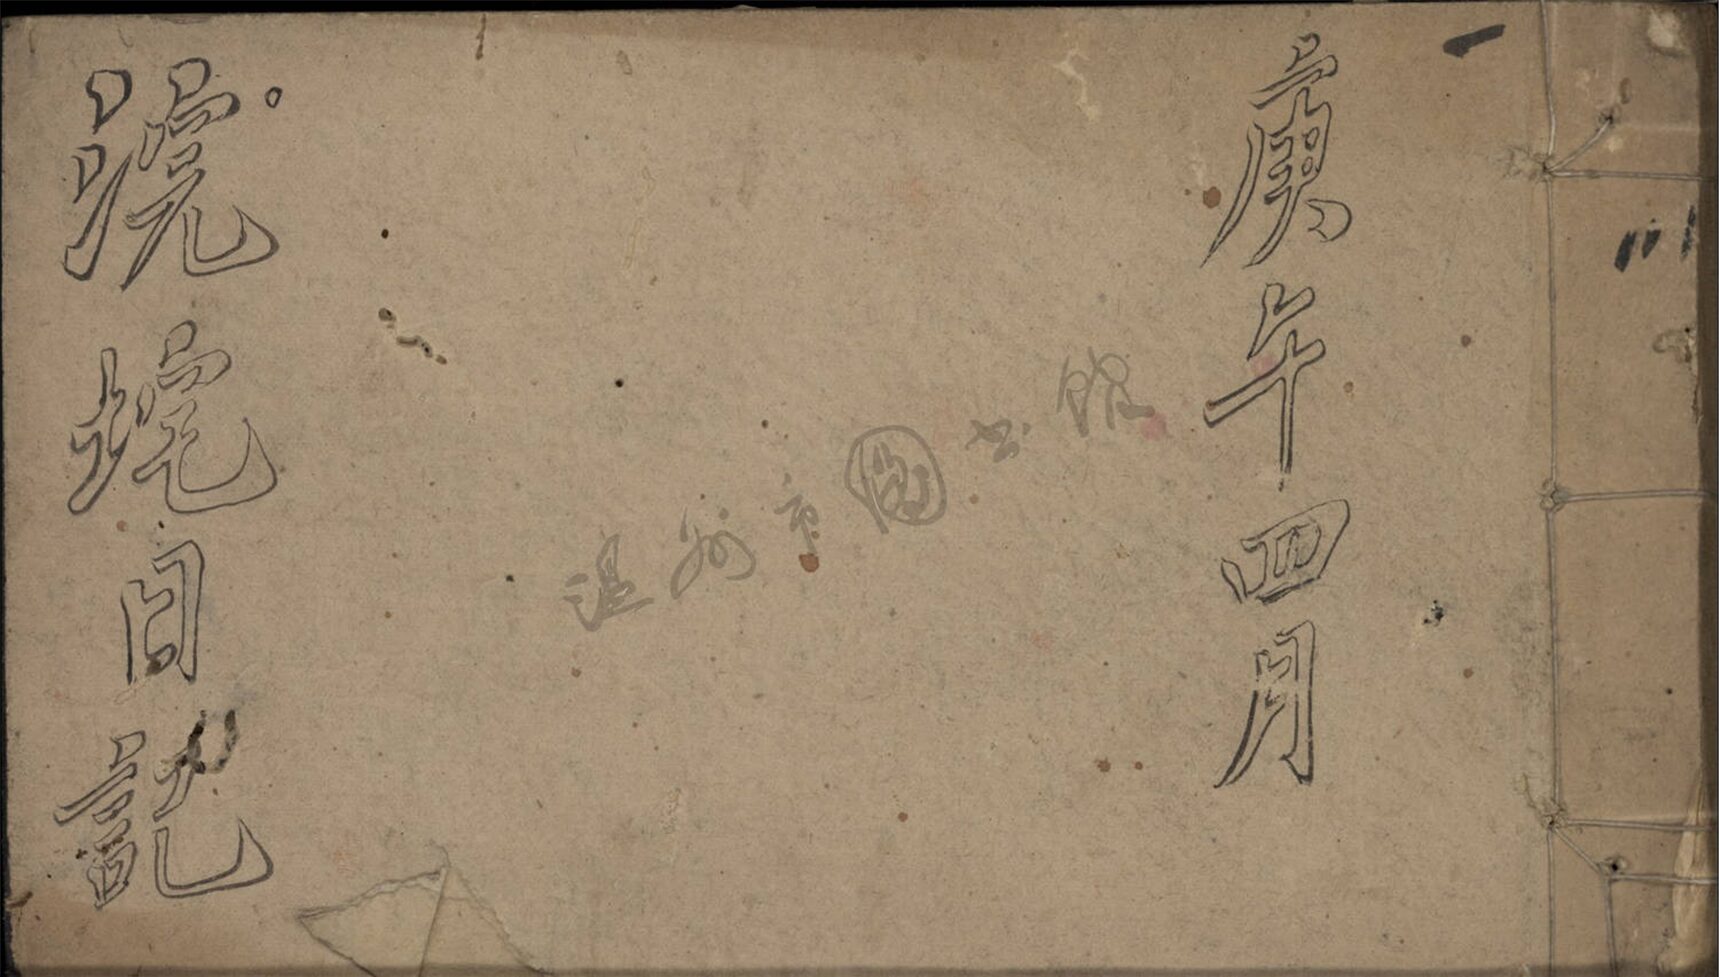 庚午四月
浣垞日記
温州市图书馆